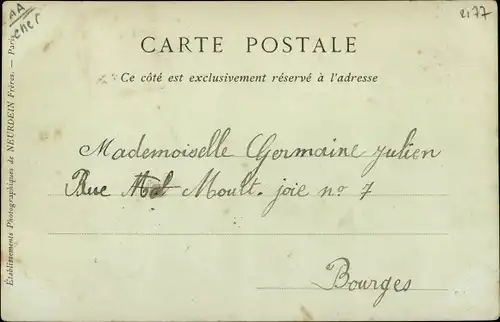 AA
cher
2177
CARTE POSTALE
Ce côté est exclusivement réservé à l'adresse
Mademoiselle Germaine Julien
Rue Moult. joie nº 7
Bourges
Établissements Photographiques de NEURDEIN Frères. — Paris